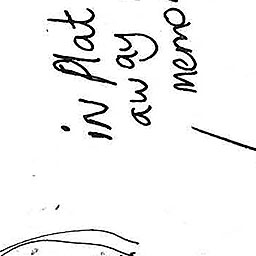 in Plat
away
memo